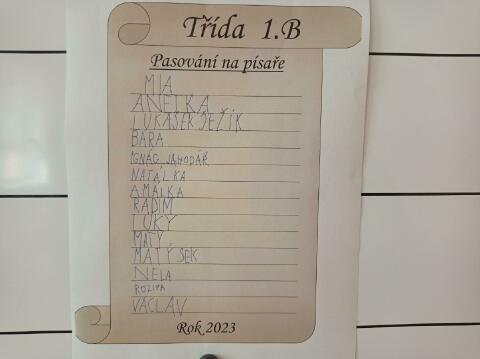 Třída 1.B
Pasování na písaře
MIA
ANETKA
LUKÁŠEK JEŽÍK
BARA
IGNÁC JAHODÁŘ
NATÁLKA
AMÁLKA
RADIM
LUKY
MATY
MATÝSEK
NELA
VÁCLAV
Rok 2023